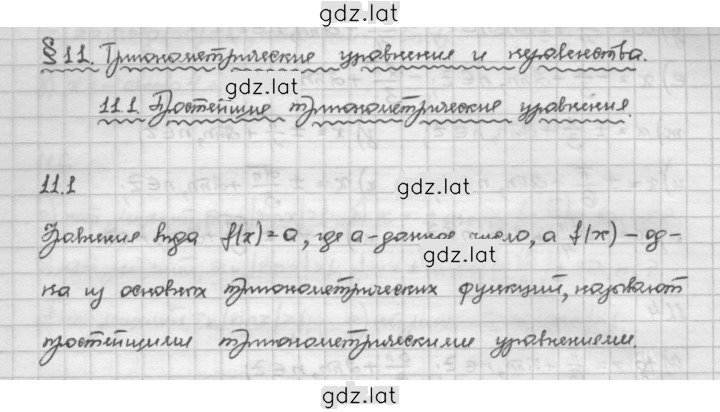 gdz.lat
§ 11. Тригонометрические уравнения и неравенства.
gdz.lat
11.1 Простейшие тригонометрические уравнения.
11.1
gdz.lat
Уравнения вида f(x)=a, где a-данное число, а f(x) - од-
gdz.lat
на из основных тригонометрических функций, называют
простейшими тригонометрическими уравнениями.
gdz.lat